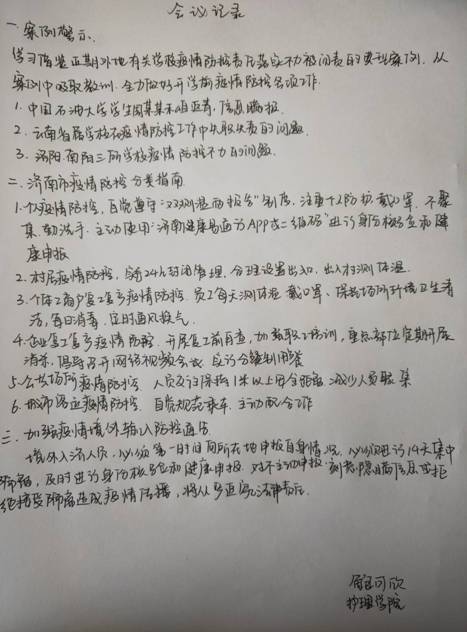 会议记录
一、案例警示、
学习借鉴近期外地有关学校疫情防控责任落实不力被问责的典型案例，从
案例中吸取教训，全力做好开学前疫情防控各项工作.
1. 中国石油大学学生周某某未明返青，信息瞒报.
2. 云南省昌学校在疫情防控工作中失职失责的问题.
3. 洛阳、南阳三所学校疫情防控不力的问题.
二、济南市疫情防控分类指南
1. 个人疫情防控，自觉遵守"双测温两报告"制度，注重个人防护，戴口罩，不聚
集，勤洗手，主动使用"济南健康易通行APP或二维码"进行身份核查和健
康申报
2. 村居疫情防控，全面24h封闭管理，合理设置出入口，出入扫测体温.
3. 个体工商户复工复产疫情防控 员工每天测体温 戴口罩、保持场所环境卫生清
洁，每日消毒，定时通风换气.
4. 企业复工复产疫情防控 开展复工前自查，加强职工培训，重点部位定期开展
消杀，倡导召开网络视频会议 实行分餐制用餐
5. 公共场所疫情防控 人员交流保持1米以上安全距离 减少人员聚集
6. 城市客运疫情防控. 自觉规范乘车. 主动配合工作
三、加强疫情境外输入防控通告
境外入济人员，必须第一时间向所在地申报自身情况，必须进行14天集中
隔离，及时进行身份核查和健康申报. 对不主动申报、刻意隐瞒信息或拒
绝接受隔离造成疫情传播，将从严追究法律责任.
可欣
护理学院